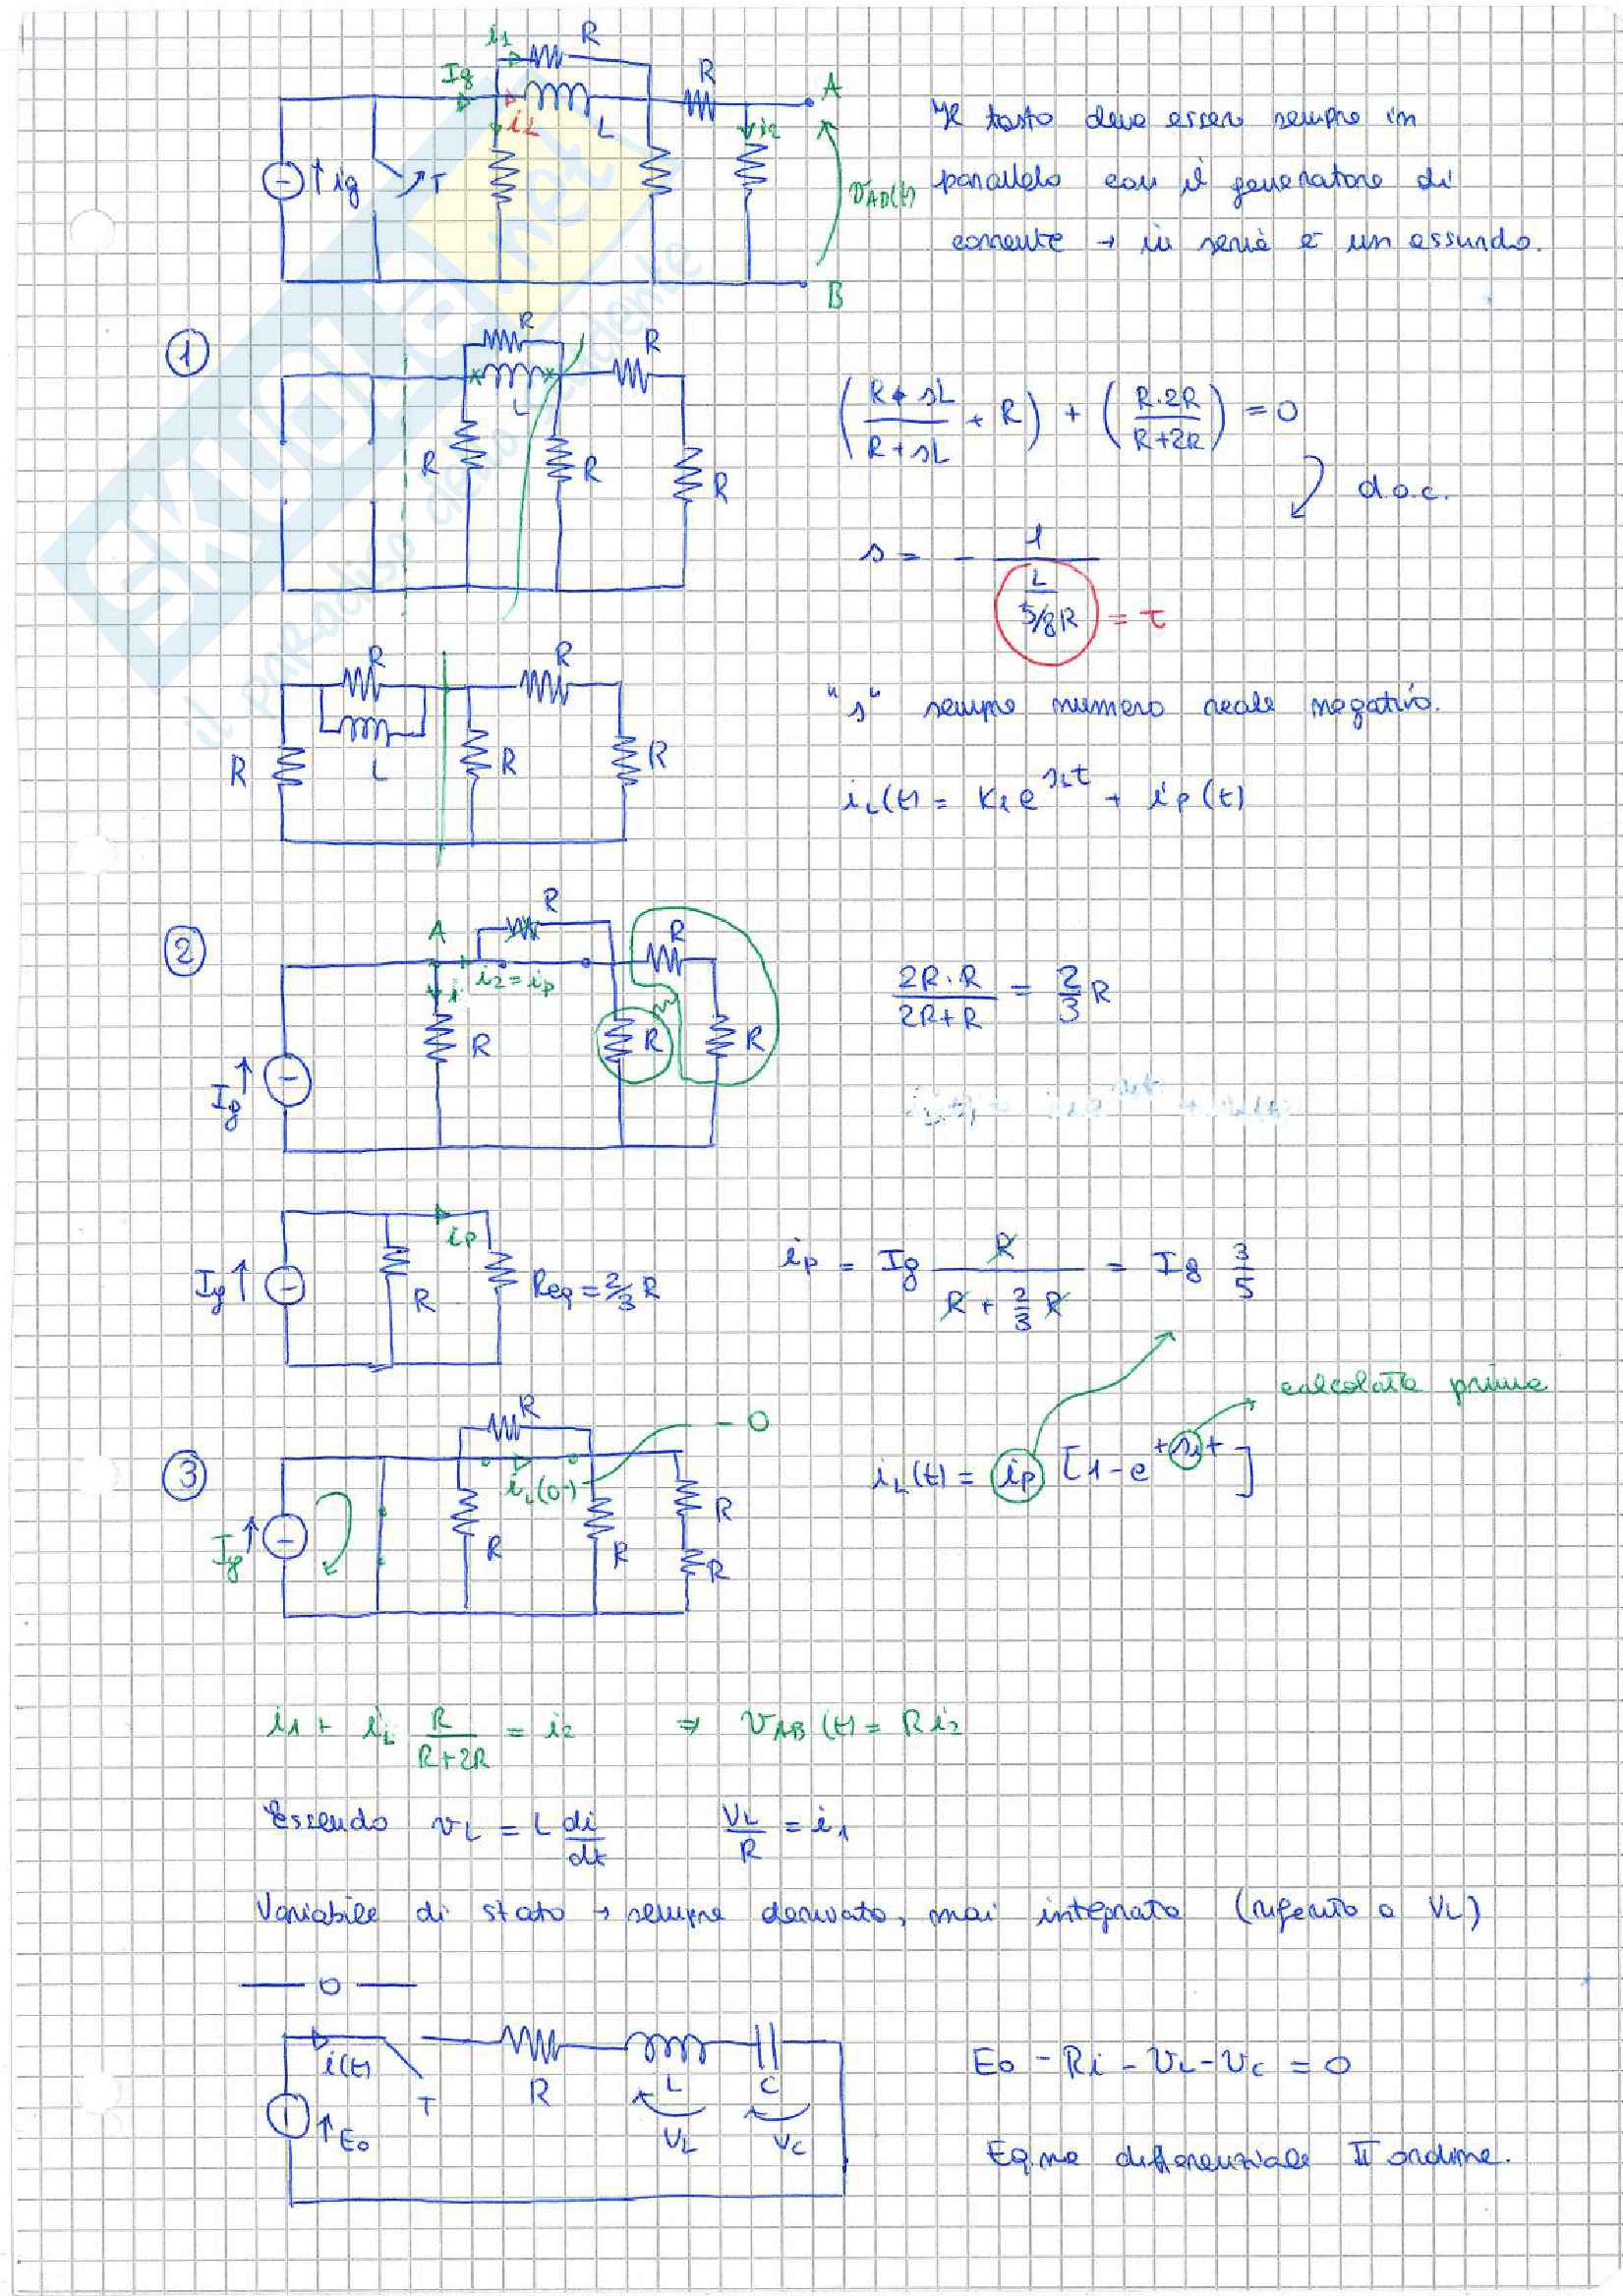 i1 R
Ig R A
iL L i2
↑ig T vAB(t)
B
Il tasto deve essere sempre in
parallelo con il generatore di
corrente → in serie è un assurdo.
① R R
L
R R R
(R + sL / R + sL + R) + (R·2R / R+2R) = 0
d.o.c.
s = - 1 / (L / 5/8R) = τ
R R
L
R R R
"s" sempre numero reale negativo.
iL(t) = K1 e^s1t + ip(t)
② A R R
i i2=ip
R R R
Ig↑
2R·R / 2R+R = 2/3 R
Ig↑ ip
R Req = 2/3 R
ip = Ig R / (R + 2/3 R) = Ig 3/5
calcolata prima
③ R - 0
iL(0-)
Ig↑ R R R
R
iL(t) = ip [1-e^+s1t]
i1 + iL R / R+2R = i2 ⇒ vAB(t) = R i2
Essendo vL = L di/dt VL/R = i1
Variabile di stato → sempre derivata, mai integrata (riferito a VL)
— 0 —
i(t) T R L C
↑E0 VL VC
E0 - Ri - VL - VC = 0
Eq.ne differenziale II ordine.
SKUOLA.net
il paradiso dello studente